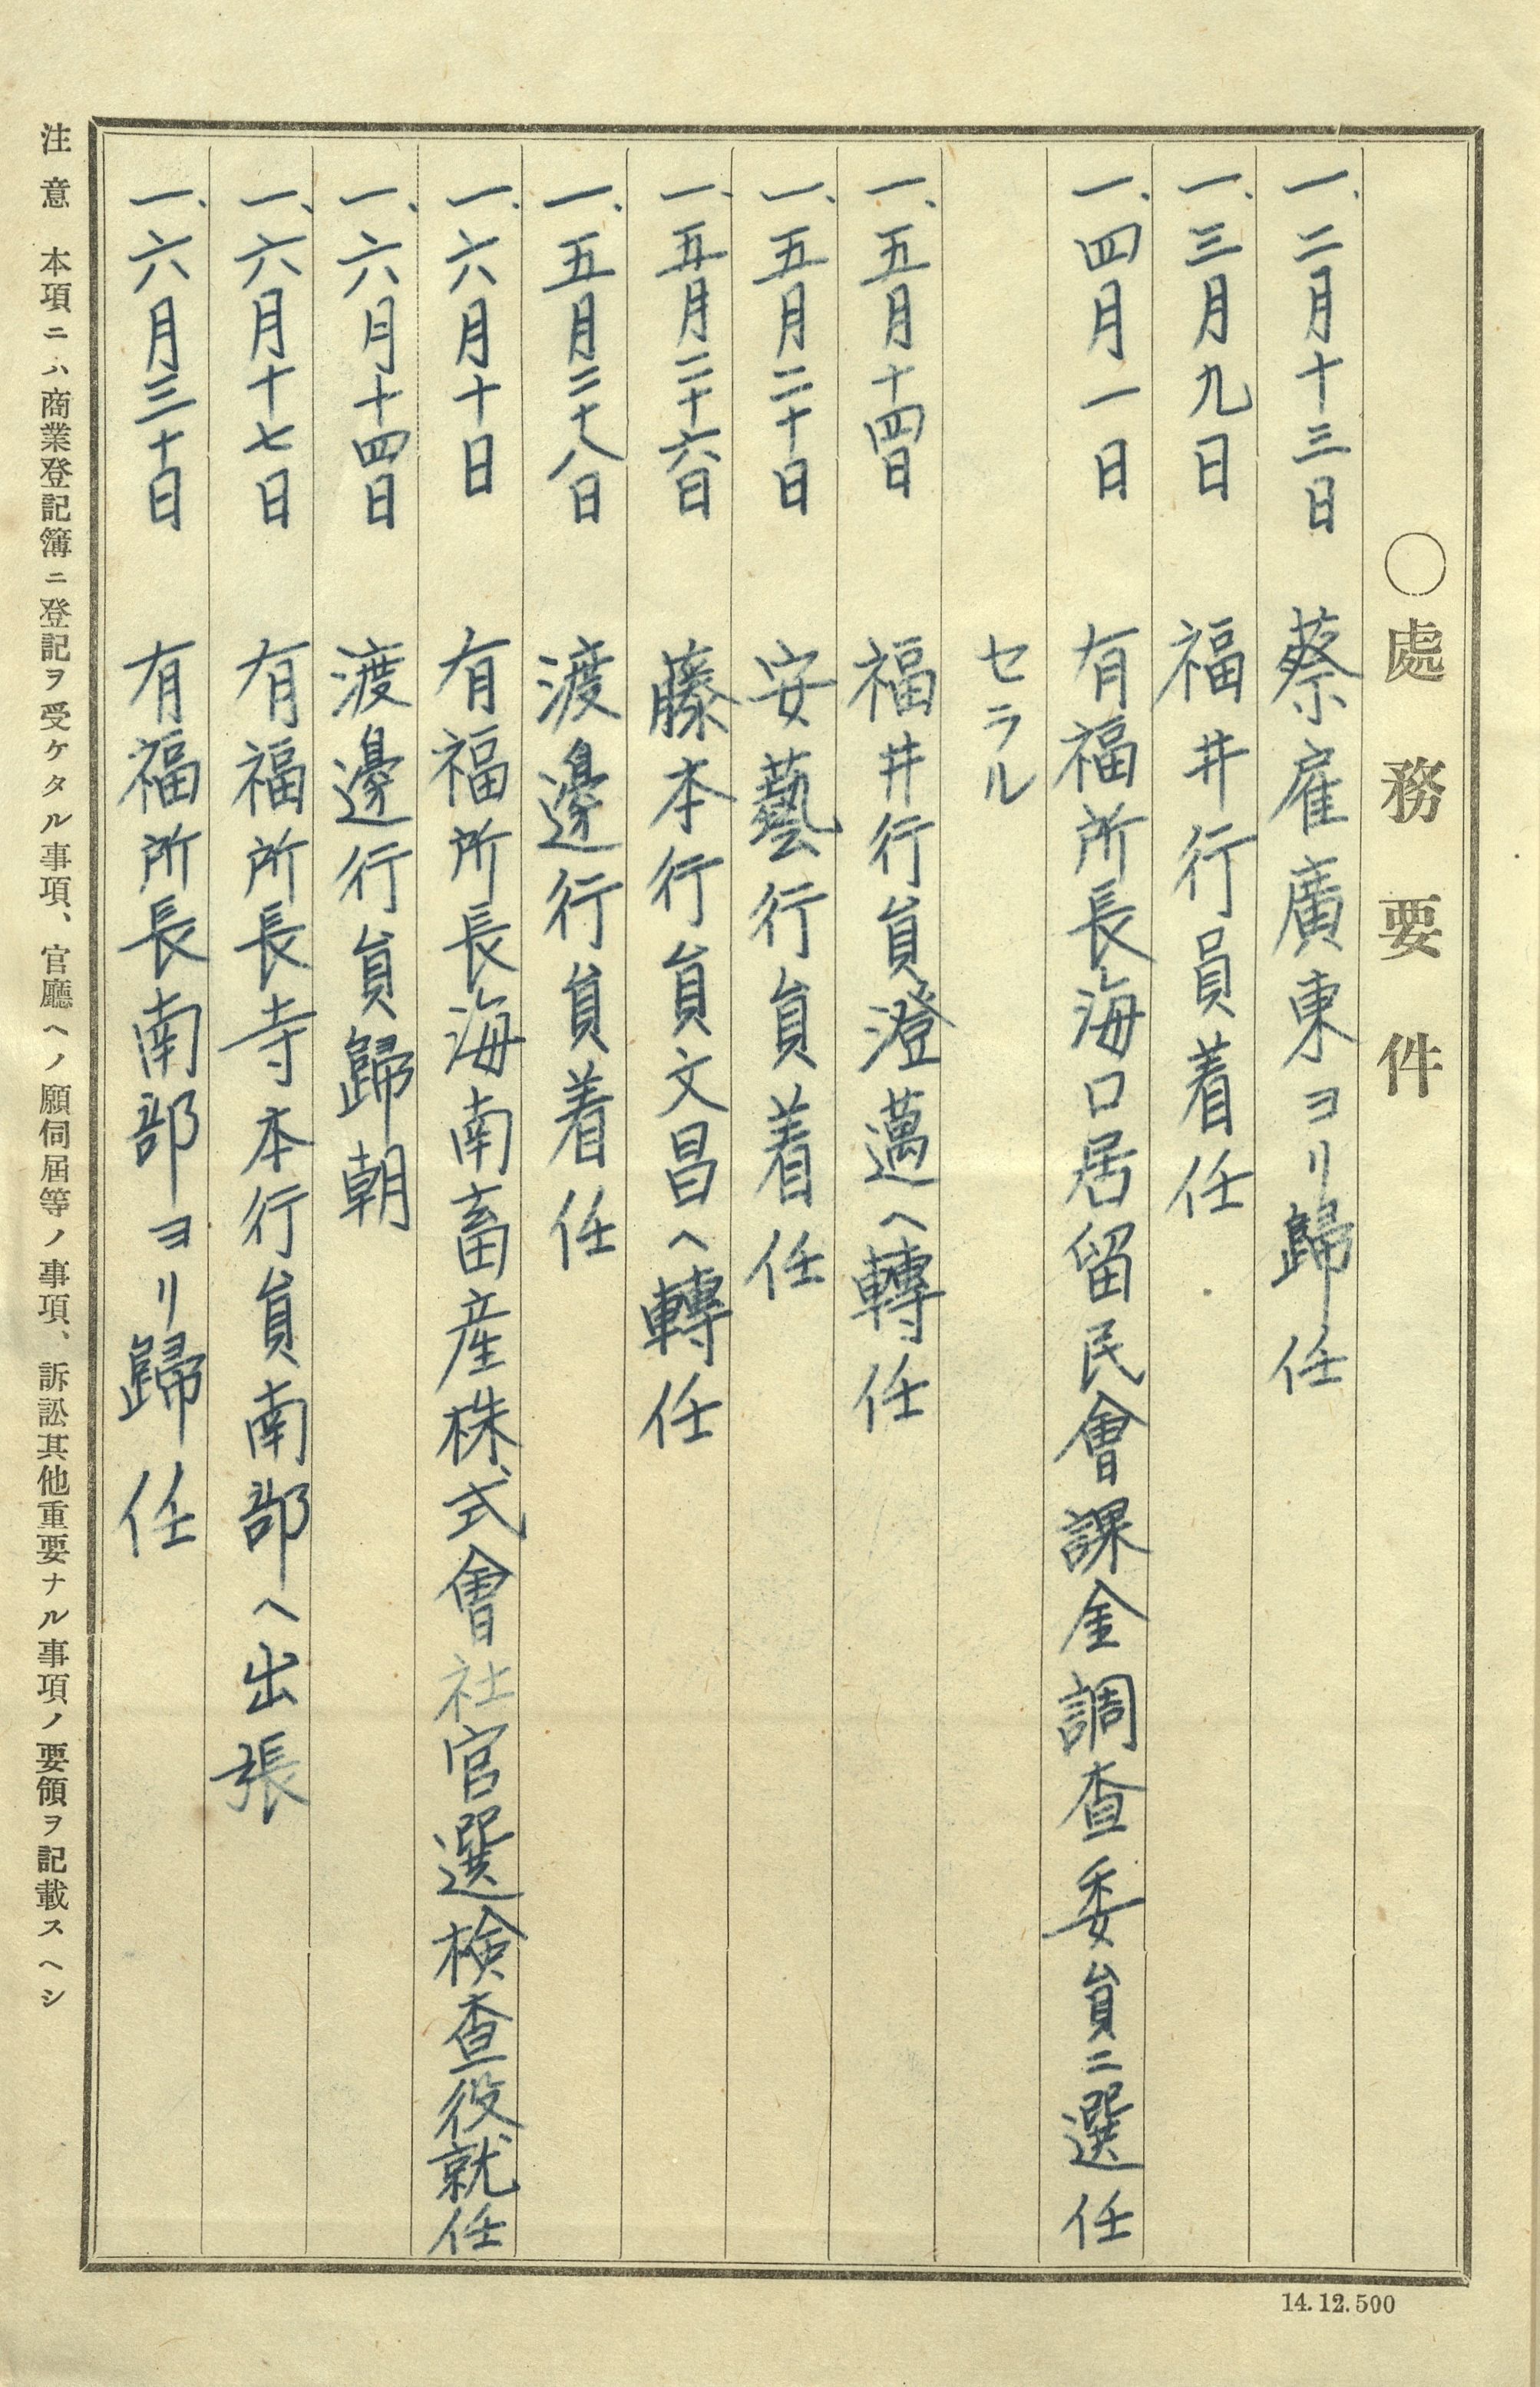 ○處務要件
一、二月十三日 蔡雇廣東ヨリ歸任
一、三月九日 福井行員着任
一、四月一日 有福所長海口居留民會課金調査委員ニ選任
セラル
一、五月十四日 福井行員澄邁ヘ轉任
一、五月二十日 安藝行員着任
一、五月二十六日 藤本行員文昌ヘ轉任
一、五月二十八日 渡邊行員着任
一、六月十日 有福所長海南畜産株式會社官選検査役就任
一、六月十四日 渡邊行員歸朝
一、六月十七日 有福所長寺本行員南部ヘ出張
一、六月三十日 有福所長南部ヨリ歸任
注意 本項ニハ商業登記簿ニ登記ヲ受ケタル事項、官廳ヘノ願伺屆等ノ事項、訴訟其他重要ナル事項ノ要領ヲ記載スヘシ
14.12.500